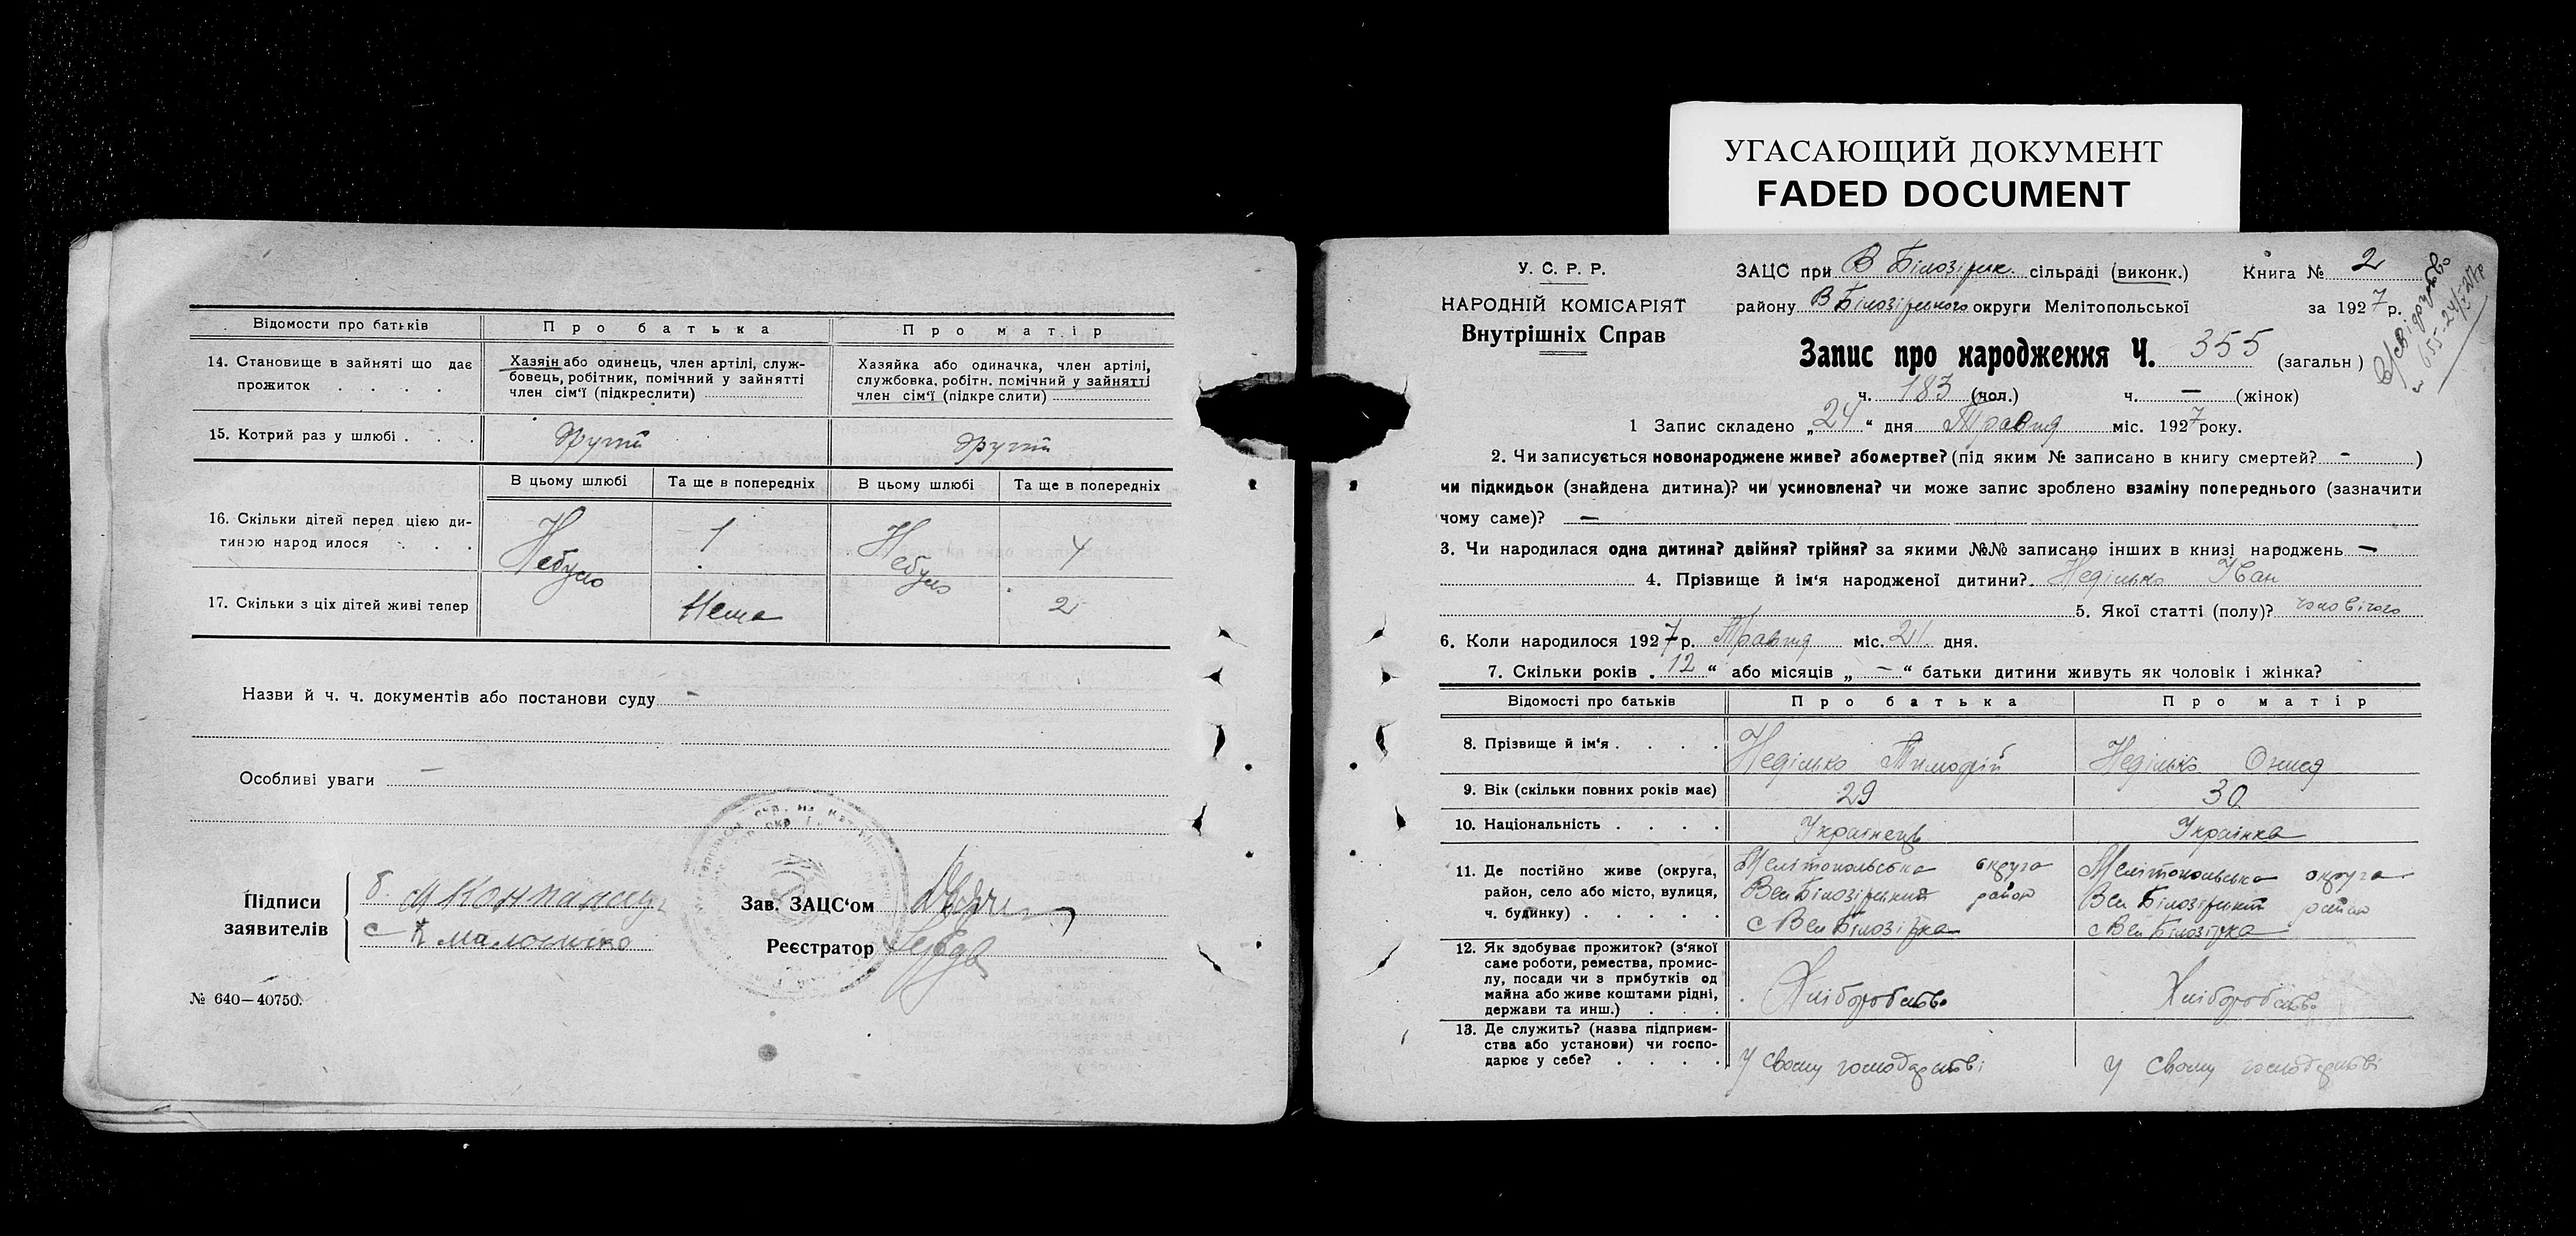 УГАСАЮЩИЙ ДОКУМЕНТ
FADED DOCUMENT
Відомости про батьків Про батька Про матір
14. Становище в зайняті що дає прожиток . . . .
Хазяін або одинець, член артілі, служ-
бовець, робітник, помічний у зайнятті
член сім'ї (підкреслити)
Хазяйка або одиначка, член артілі,
службовка, робітн. помічний у зайнятті
член сім'ї (підкреслити)
15. Котрий раз у шлюбі . . . другий другий
В цьому шлюбі Та ще в попередніх В цьому шлюбі Та ще в попередніх
16. Скільки дітей перед цією ди-
тиною народилося . . . Небуло 1 Небуло 4
17. Скільки з ціх дітей живі тепер Нема 2
Назви й ч. ч. документів або постанови суду –
Особливі уваги –
Підписи
заявителів
б.
с
Зав. ЗАЦС'ом
Реєстратор
№ 640—40750.
У. С. Р. Р.
НАРОДНІЙ КОМІСАРІЯТ
Внутрішніх Справ
ЗАЦС при В Білозірк. сільраді (виконк.) Книга № 2
району В Білозірського округи Мелітопольської за 1927 р.
Запис про народження Ч. 355 (загальн)
ч. 183 (чол.) ч. — (жінок)
1 Запис складено „24“ дня Травня міс. 1927 року.
2. Чи записується новонароджене живе? або мертве? (під яким № записано в книгу смертей? – )
чи підкидьок (знайдена дитина)? чи усиновлена? чи може запис зроблено взаміну попереднього (зазначити
чому саме)? —
3. Чи народилася одна дитина? двійня? трійня? за якими №№ записано інших в книзі народжень —
4. Прізвище й ім'я народженої дитини? Неділько Іван
5. Якої статті (полу)? чоловічого
6. Коли народилося 1927 р. Травня міс. 21 дня.
7. Скільки років „12“ або місяців „–“ батьки дитини живуть як чоловік і жінка?
Відомості про батьків Про батька Про матір
8. Прізвище й ім'я . . . . Неділько Тимофій Неділько
9. Вік (скільки повних років має) 29 30
10. Національність . . . . Українець Українка
11. Де постійно живе (округа,
район, село або місто, вулиця,
ч. будинку) . . . . .
Мелітопольська округа
Вел Білозірський район
с Вел Білозірка
Мелітопольська округа
Вел Білозірський район
с Вел Білозірка
12. Як здобуває прожиток? (з'якої
саме роботи, ремества, промис-
лу, посади чи з прибутків од
майна або живе коштами рідні,
держави та инш.) . . .
Хліборобство
Хліборобство
13. Де служить? (назва підприєм-
ства або установи) чи госпо-
дарює у себе? . . . .
У Своему господарстві
У Своему господарстві